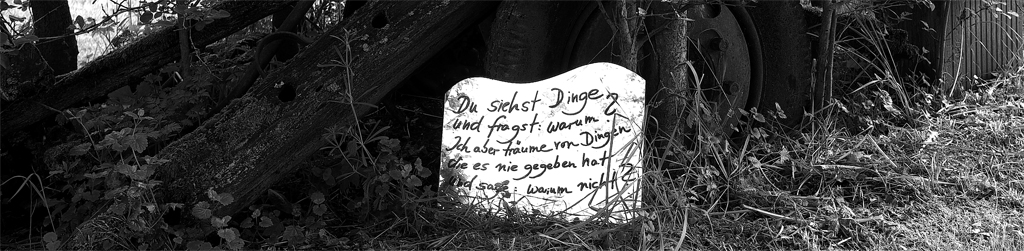 Du siehst Dinge
und fragst: warum?
Ich aber träume von Dingen
die es nie gegeben hat
und sage: warum nicht?